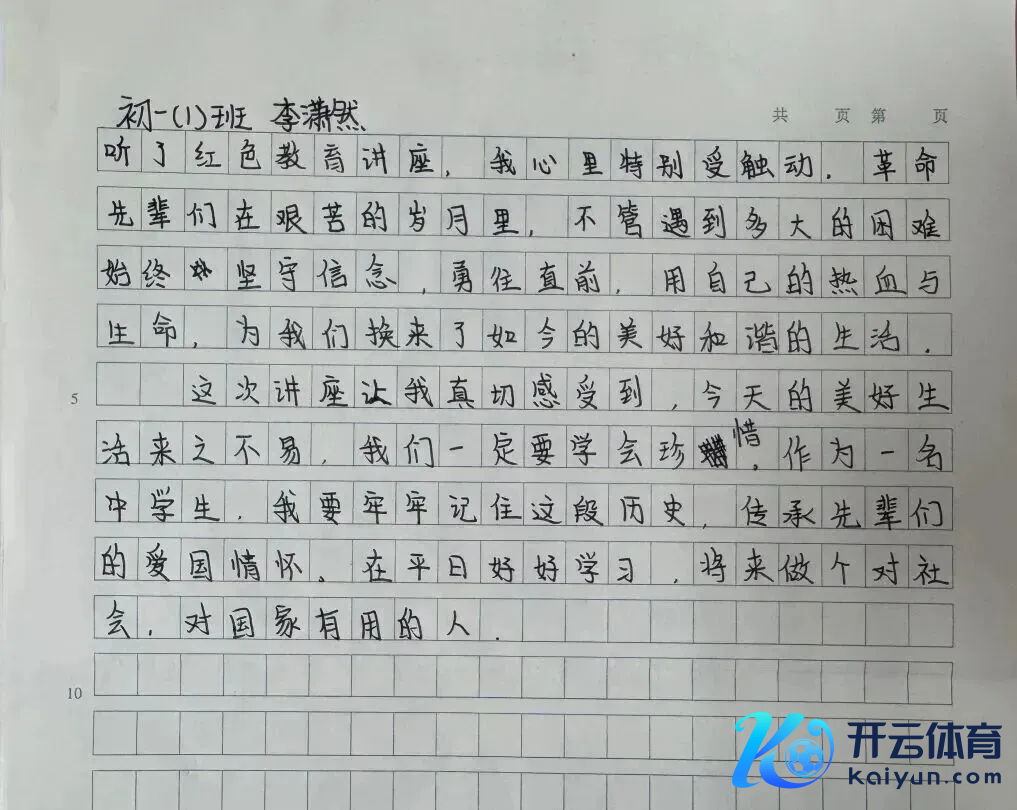 初一(1)班 李潇然
共 页 第 页
听了红色教育讲座,我心里特别受触动.革命
先辈们在艰苦的岁月里,不管遇到多大的困难
始终坚守信念,勇往直前,用自己的热血与
生命,为我们换来了如今的美好和谐的生活.
5 这次讲座让我真切感受到,今天的美好生
活来之不易,我们一定要学会珍惜.作为一名
中学生.我要牢牢记住这段历史,传承先辈们
的爱国情怀。在平日好好学习,将来做个对社
会,对国家有用的人.
10
开云体育
kaiyun.com